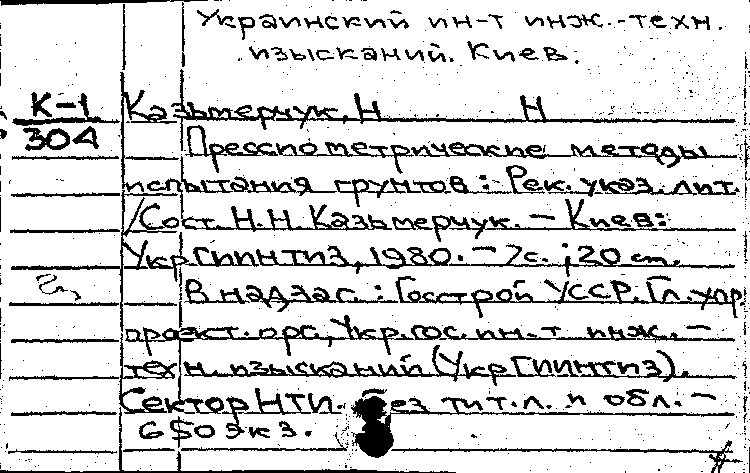 Украинский ин-т инж.-техн.
изысканий. Киев.
К-1 Казьмерчук, Н Н
304 Прессиометрические методы
испытания грунтов: Рек. указ. лит.
/Сост. Н.Н. Казьмерчук. - Киев:
УкрГИИНТИЗ, 1980. - 7с.; 20 см.
В надзаг.: Госстрой УССР. Гл. упр
проект. орг., Укр. гос. ин-т инж.-
техн. изысканий (УкрГИИНТИЗ).
Сектор НТИ. Без тит. л. и обл. -
650экз.